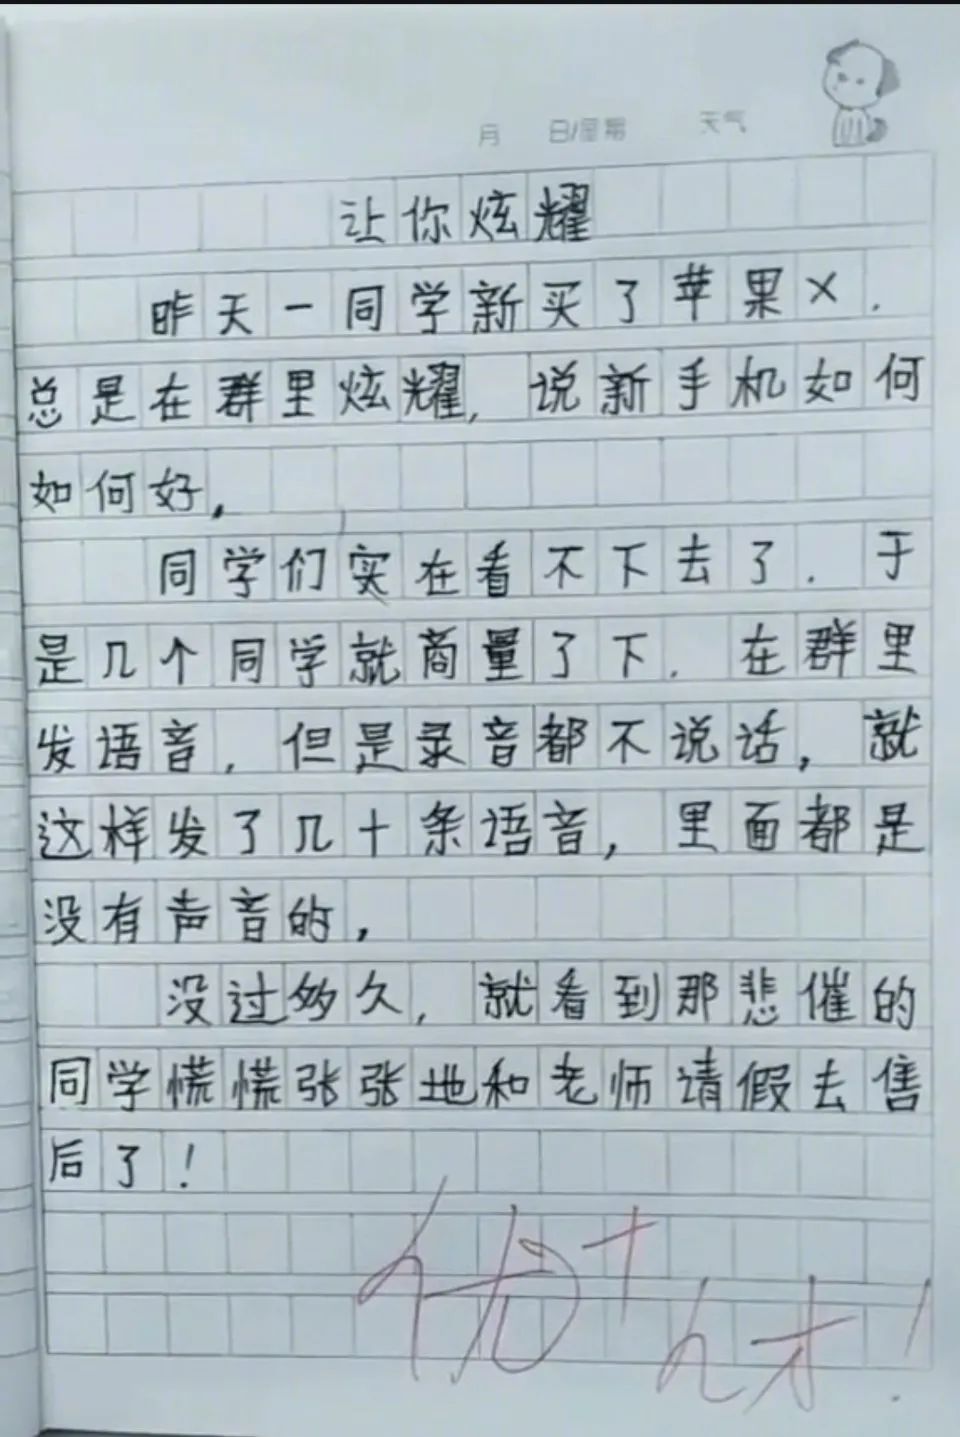 月 日/星期 天气
让你炫耀
昨天一同学新买了苹果X.
总是在群里炫耀,说新手机如何
如何好,
同学们实在看不下去了.于
是几个同学就商量了下.在群里
发语音,但是录音都不说话,就
这样发了几十条语音,里面都是
没有声音的,
没过多久,就看到那悲催的
同学慌慌张张地和老师请假去售
后了!
优+
人才!